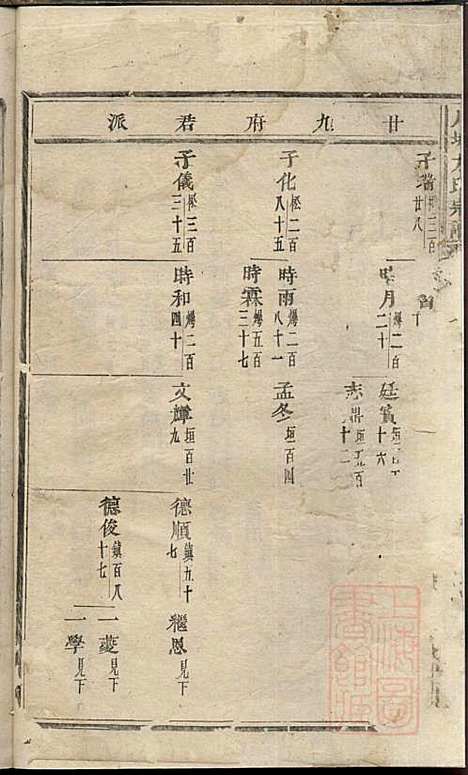 廿九府君派
子瑞 松二百廿八
子化 松二百八十五
子儀 松三百三十五
時月 爆二百二十
時雨 爆二百八十一
時霖 爆五百三十七
時和 爆二百四十
廷賓
孟冬 垣百四
文輝 垣百廿九
德順 鎮五十七
德俊 鎮百八十七
繼恩 見下
一菱 見下
一學 見下